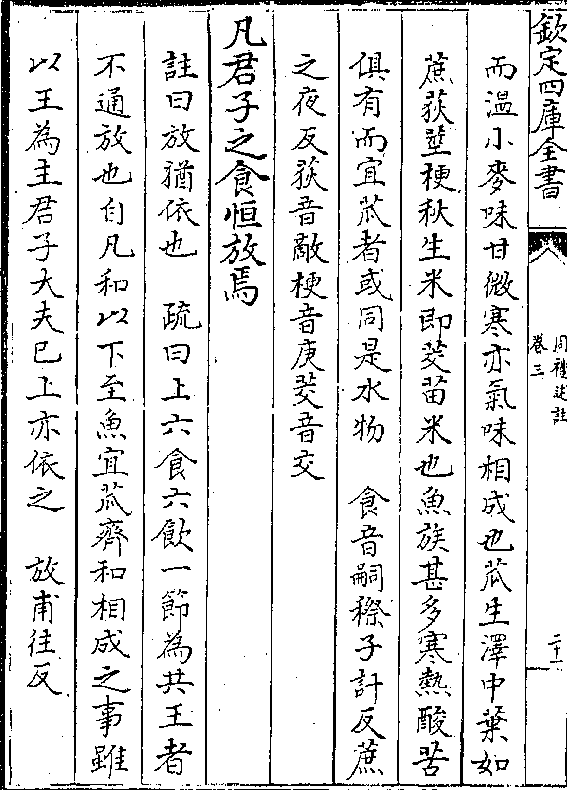 欽定四庫全書
周禮述註
卷三
二十一
而溫小麥味甘微寒亦氣味相成也苽生澤中葉如
蔗荻莖梗秋生米即茭苗米也魚族甚多寒熱酸苦
俱有而宜苽者或同是水物　食音嗣穄子計反蔗
之夜反荻音敵梗音庚茭音交
凡君子之食恒放焉
註曰放猶依也　疏曰上六食六飲一節為共王者
不通放也自凡和以下至魚宜苽齊和相成之事雖
以王為主君子大夫已上亦依之　放甫往反